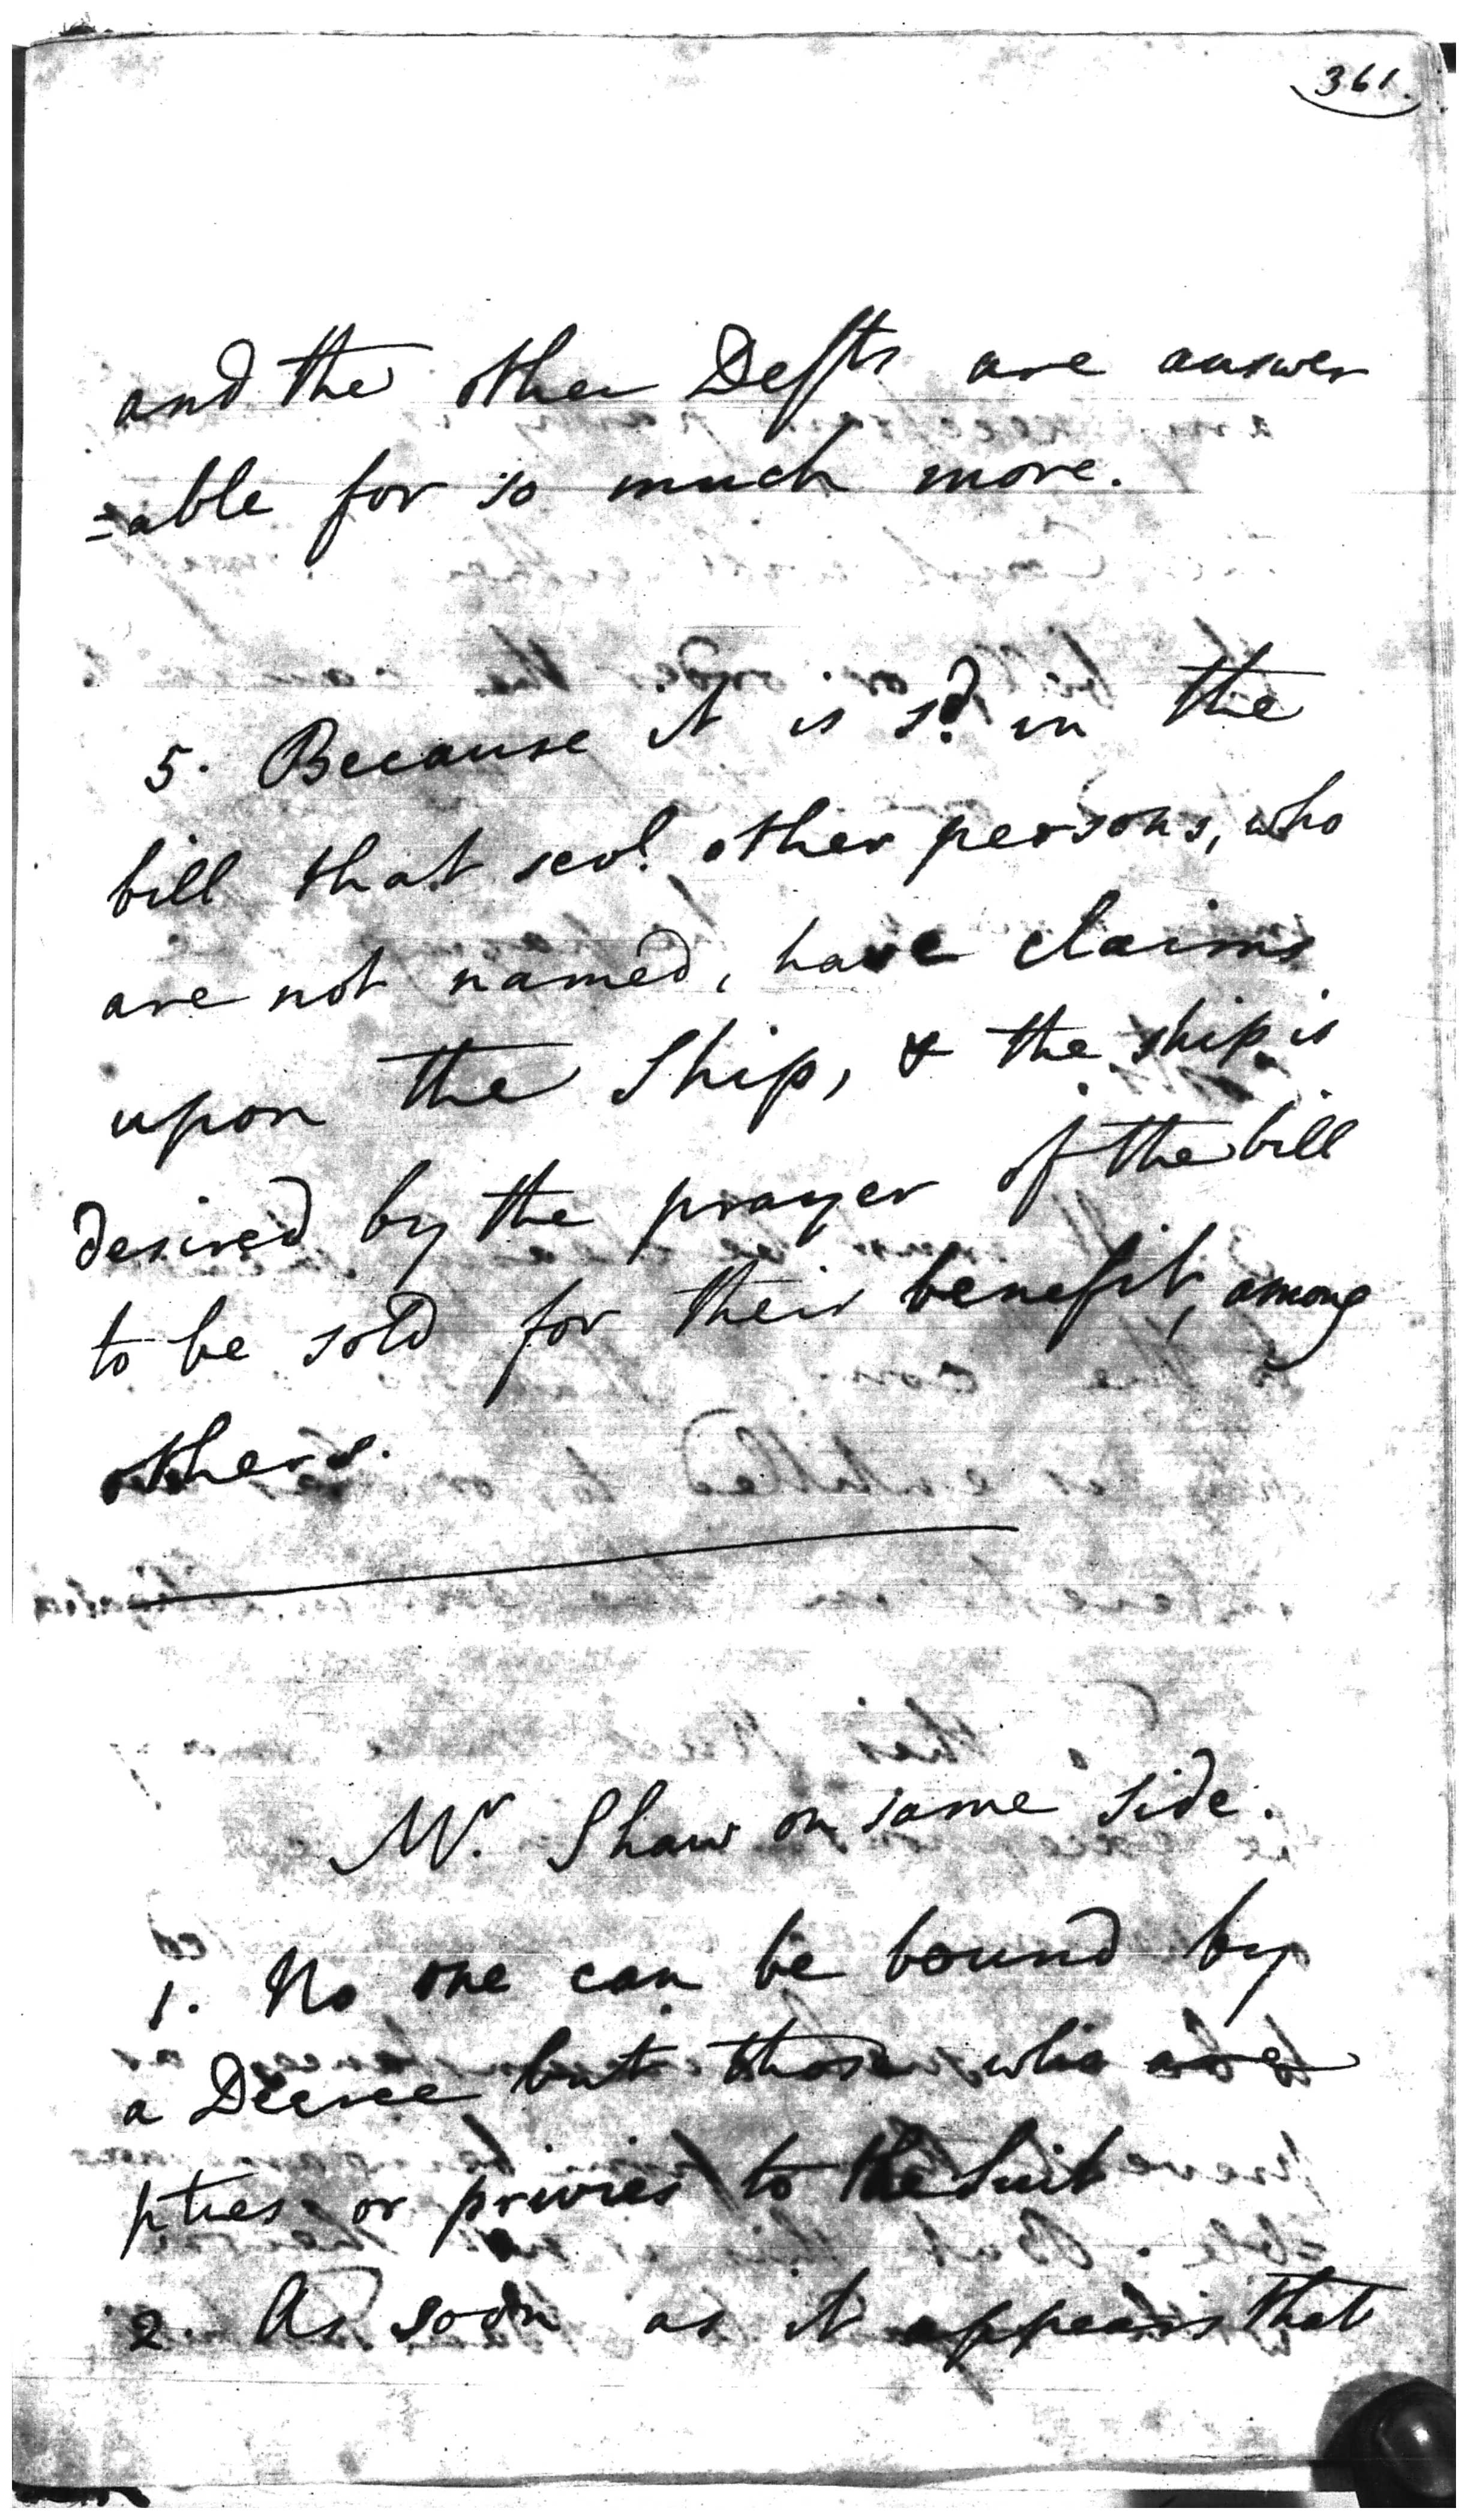 361.
and the other Defts are answer
=able for so much more.
5. Because it is sd. in the
bill that sevl. other persons, who
are not named, have claims
upon the Ship, & the ship is
desired by the prayer of the bill
to be sold for their benefit, among
others.
Mr. Shaw on same side.
1. No one can be bound by
a Decree but those who are
pties or privies to the Suit
2. As soon as it appears that